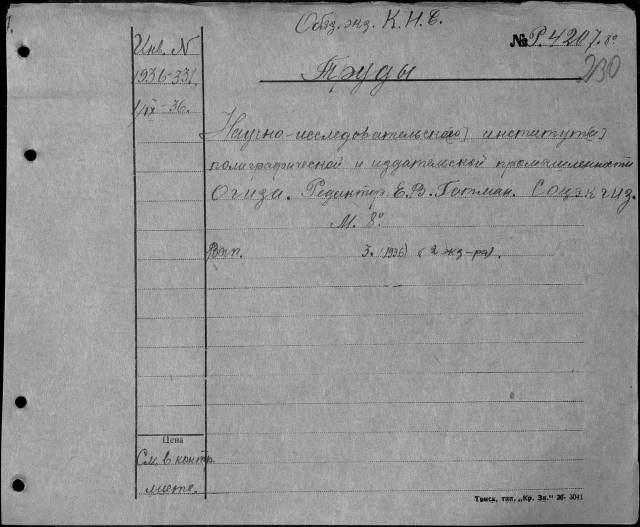 Обяз. экз. К.Н.Б.
№ Р.4207.8º
Инв. N
1936-331.
1/IX-36.
Труды
230
Научно-исследовательско[го] институт[а]
полиграфической и издательской промышленности
Огиза. Редактор Е.В. Гопман. Соцэкгиз.
М. 8º
Вып. 3. (1936) (2 экз-ра).
Цена
См. в контр.
листе.
Томск, тип. „Кр. Зн." 36- 3041